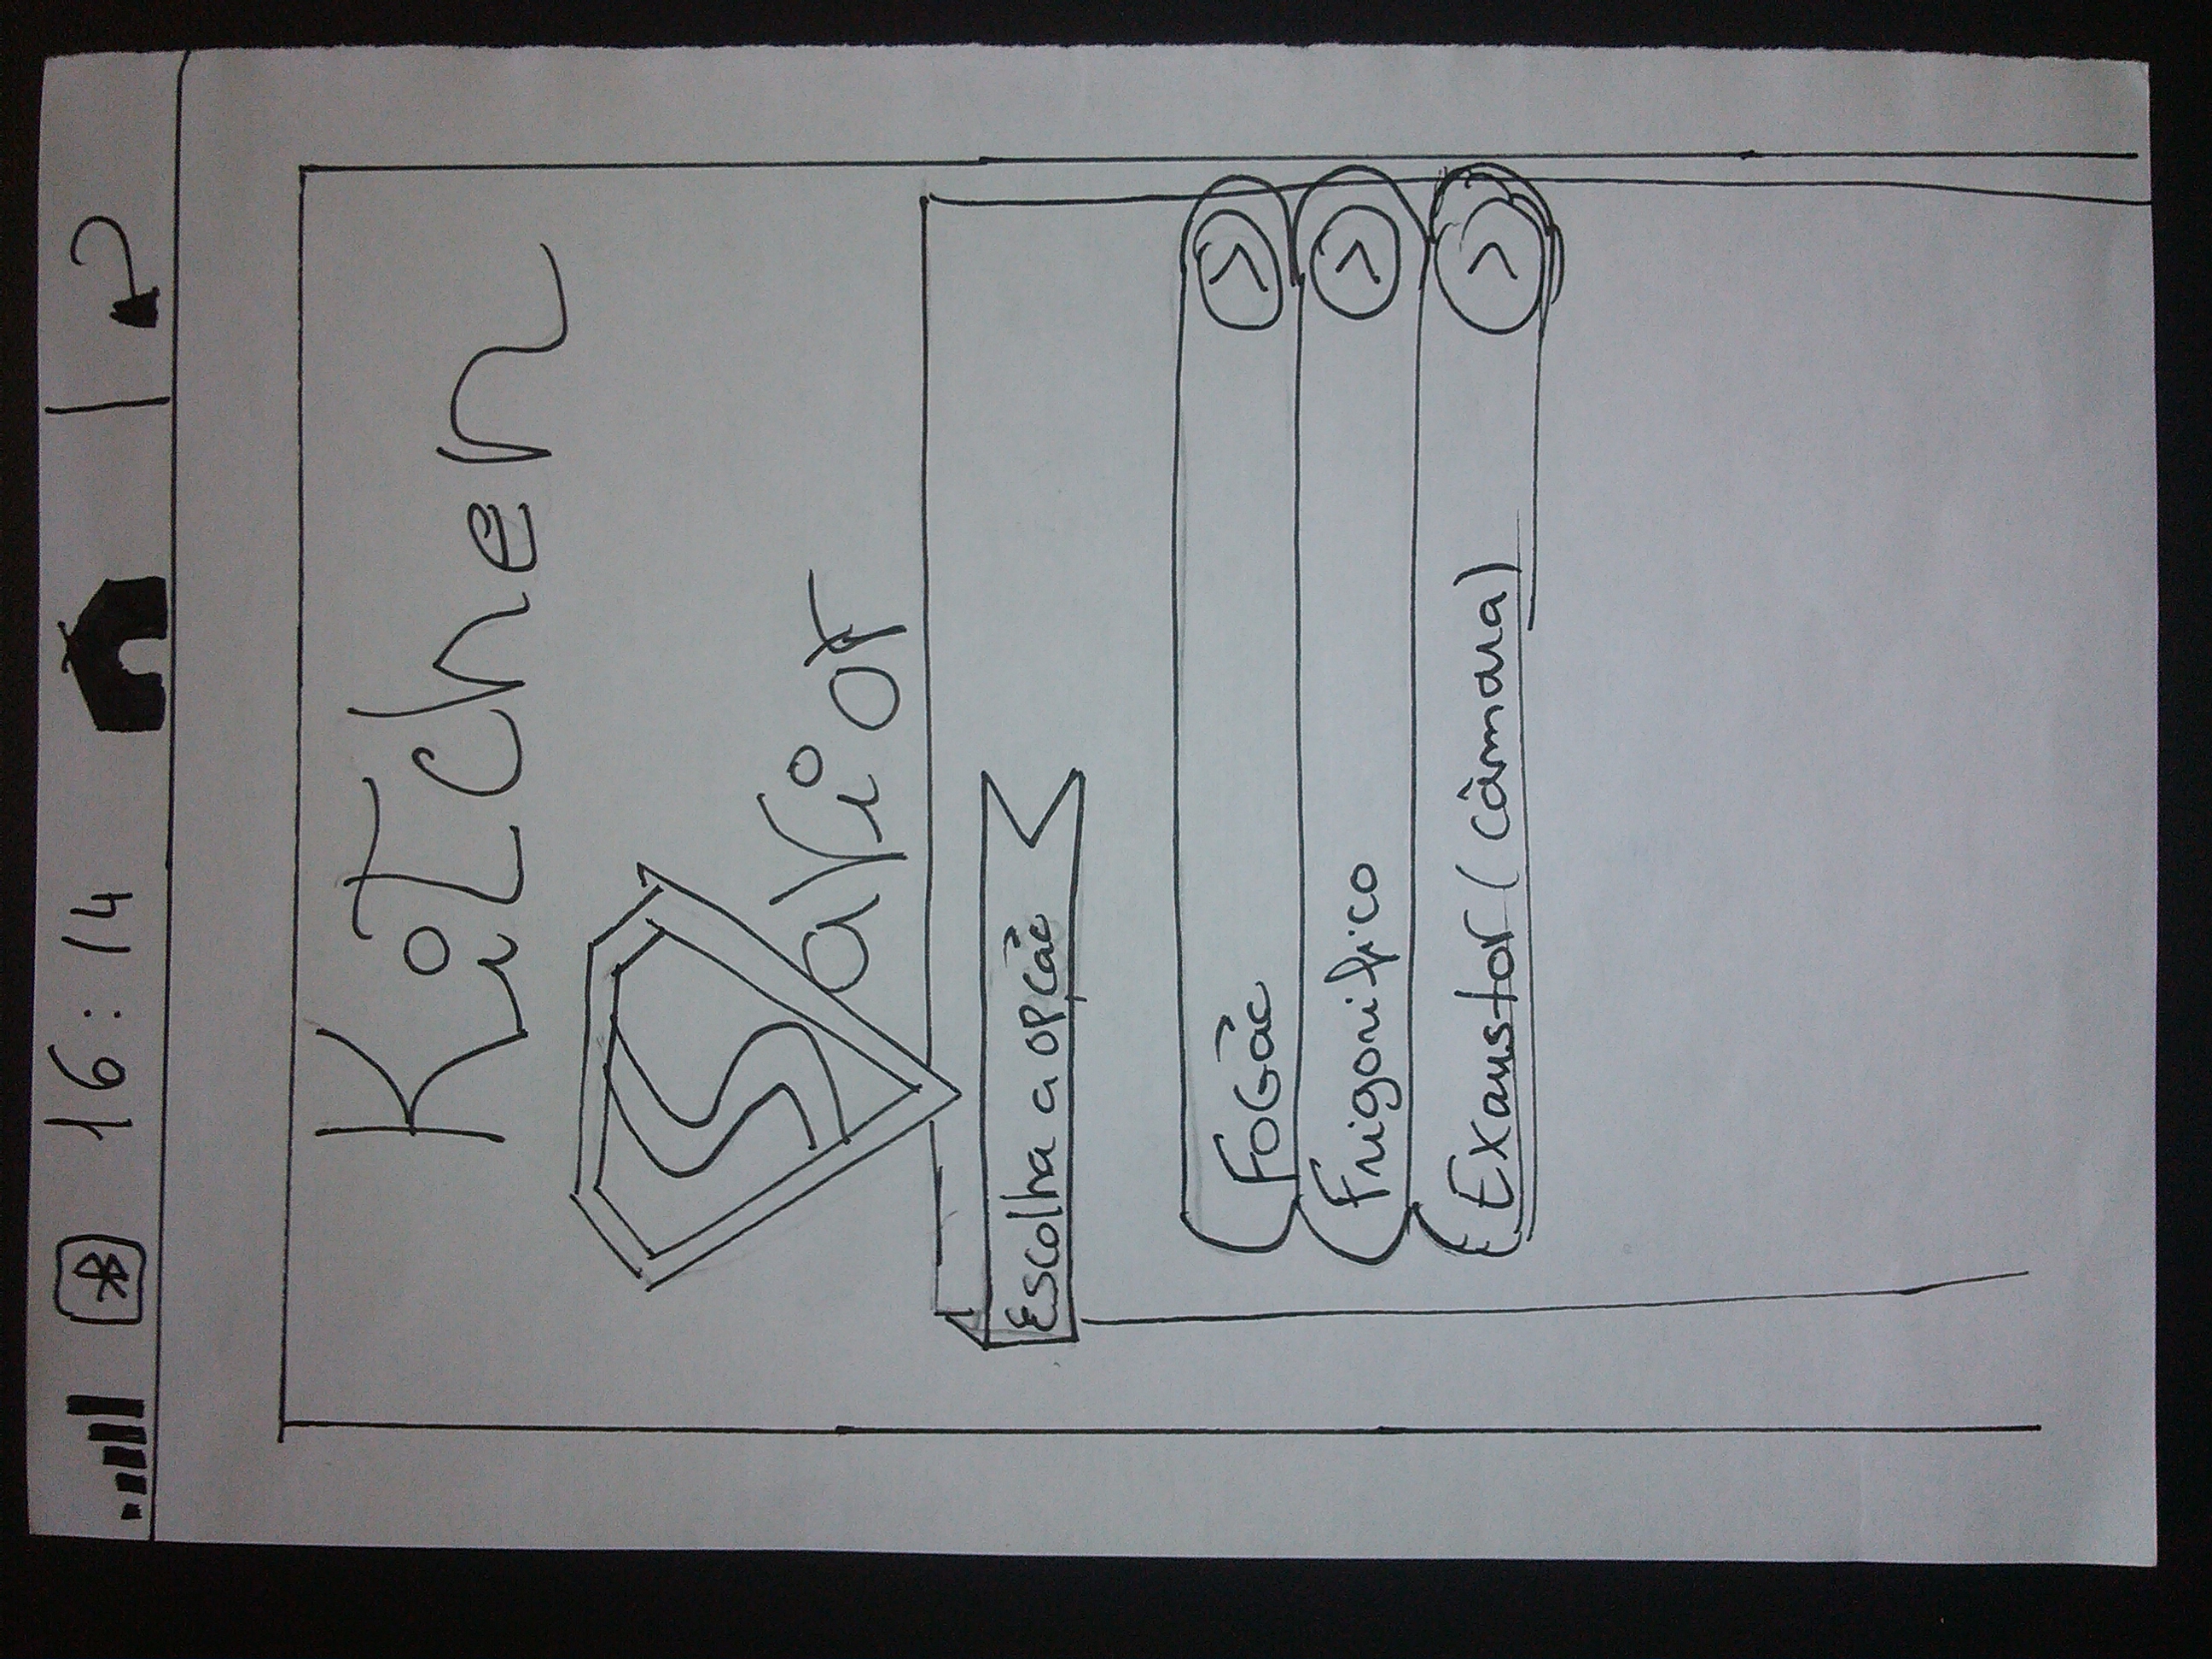 16:14
Kitchen
Savior
Escolha a opção
Fogão
Frigorifico
Exaustor (Câmara)